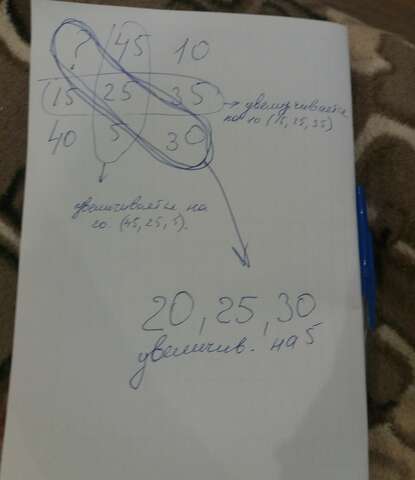 ? 45 10
15 25 35 → увеличивается
на 10 (15, 25, 35)
40 5 30
увеличивается на
20. (45, 25, 5).
20, 25, 30
увеличив. на 5